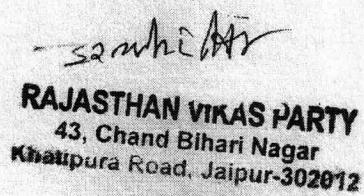 RAJASTHAN VIKAS PARTY
43, Chand Bihari Nagar
Khatipura Road, Jaipur-302012